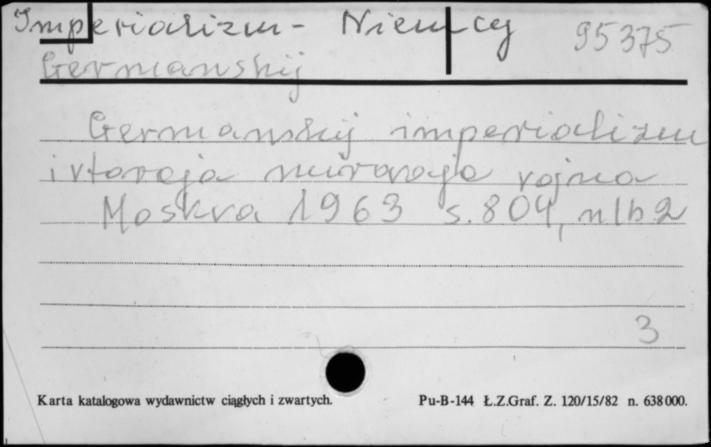 Imperializm - Niemcy 95375
Germanskij
Germanskij imperializm
i vtoraja mirovaja vojna
Moskva 1963 s. 804, nlb 2
3
Karta katalogowa wydawnictw ciągłych i zwartych. Pu-B-144 Ł.Z.Graf. Z. 120/15/82 n. 638 000.